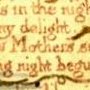 s in the night
ny delight.
Mothers s
ng night begu